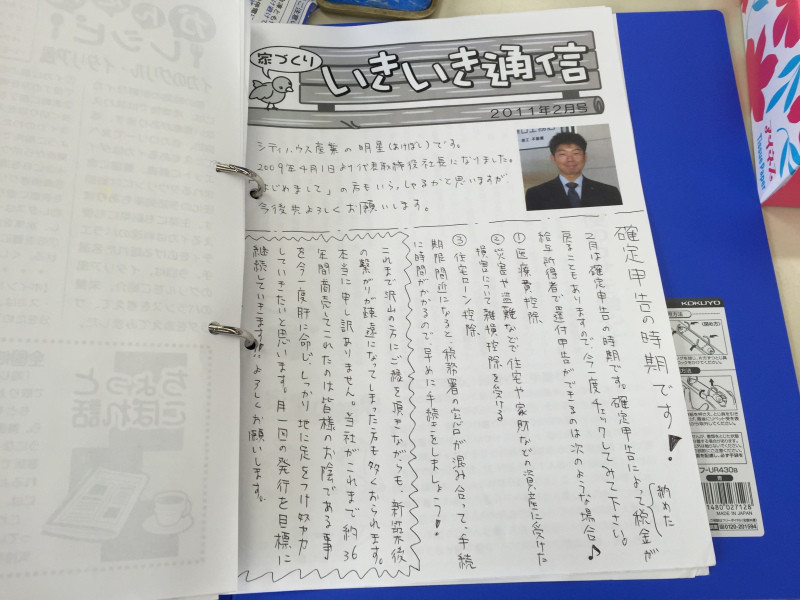 家づくり
いきいき通信
2011年2月号
シティハウス産業の明星(あけぼし)です。
2009年4月1日より代表取締役社長になりました。
はじめまして」の方もいらっしゃるかと思いますが
今後共よろしくお願いします。
確定申告の時期です!
2月は確定申告の時期です。確定申告によって税金が
納めた
戻ることもありますので、今一度チェックしてみて下さい。
給与所得者で還付申告ができるのは次のような場合♪
①医療費控除
②災害や盗難などで住宅や家財などの資産に受けた
損害について雑損控除を受ける
③住宅ローン控除
期限間近になると、税務署の窓口が混み合って、手続
に時間がかかるので、早めに手続きをしましょう!
これまで沢山の方にご縁を頂きながらも、新築後
の繋がりが疎遠になってしまった方も多くおられます。
本当に申し訳ありません。当社がこれまで約36
年間商売してこれたのは皆様のお陰である事
を今一度肝に命じ、しっかり地に足をつけ努力
していきたいと思います。月一回の発行を目標に
継続していきますよろしくお願いします。
レシピ!
イカのグリル イタリア風
ちょっと
こぼれ話
Tissue Paper
KOKUYO
フ-UR430B
480027128
MADE IN JAPAN
0120-201594